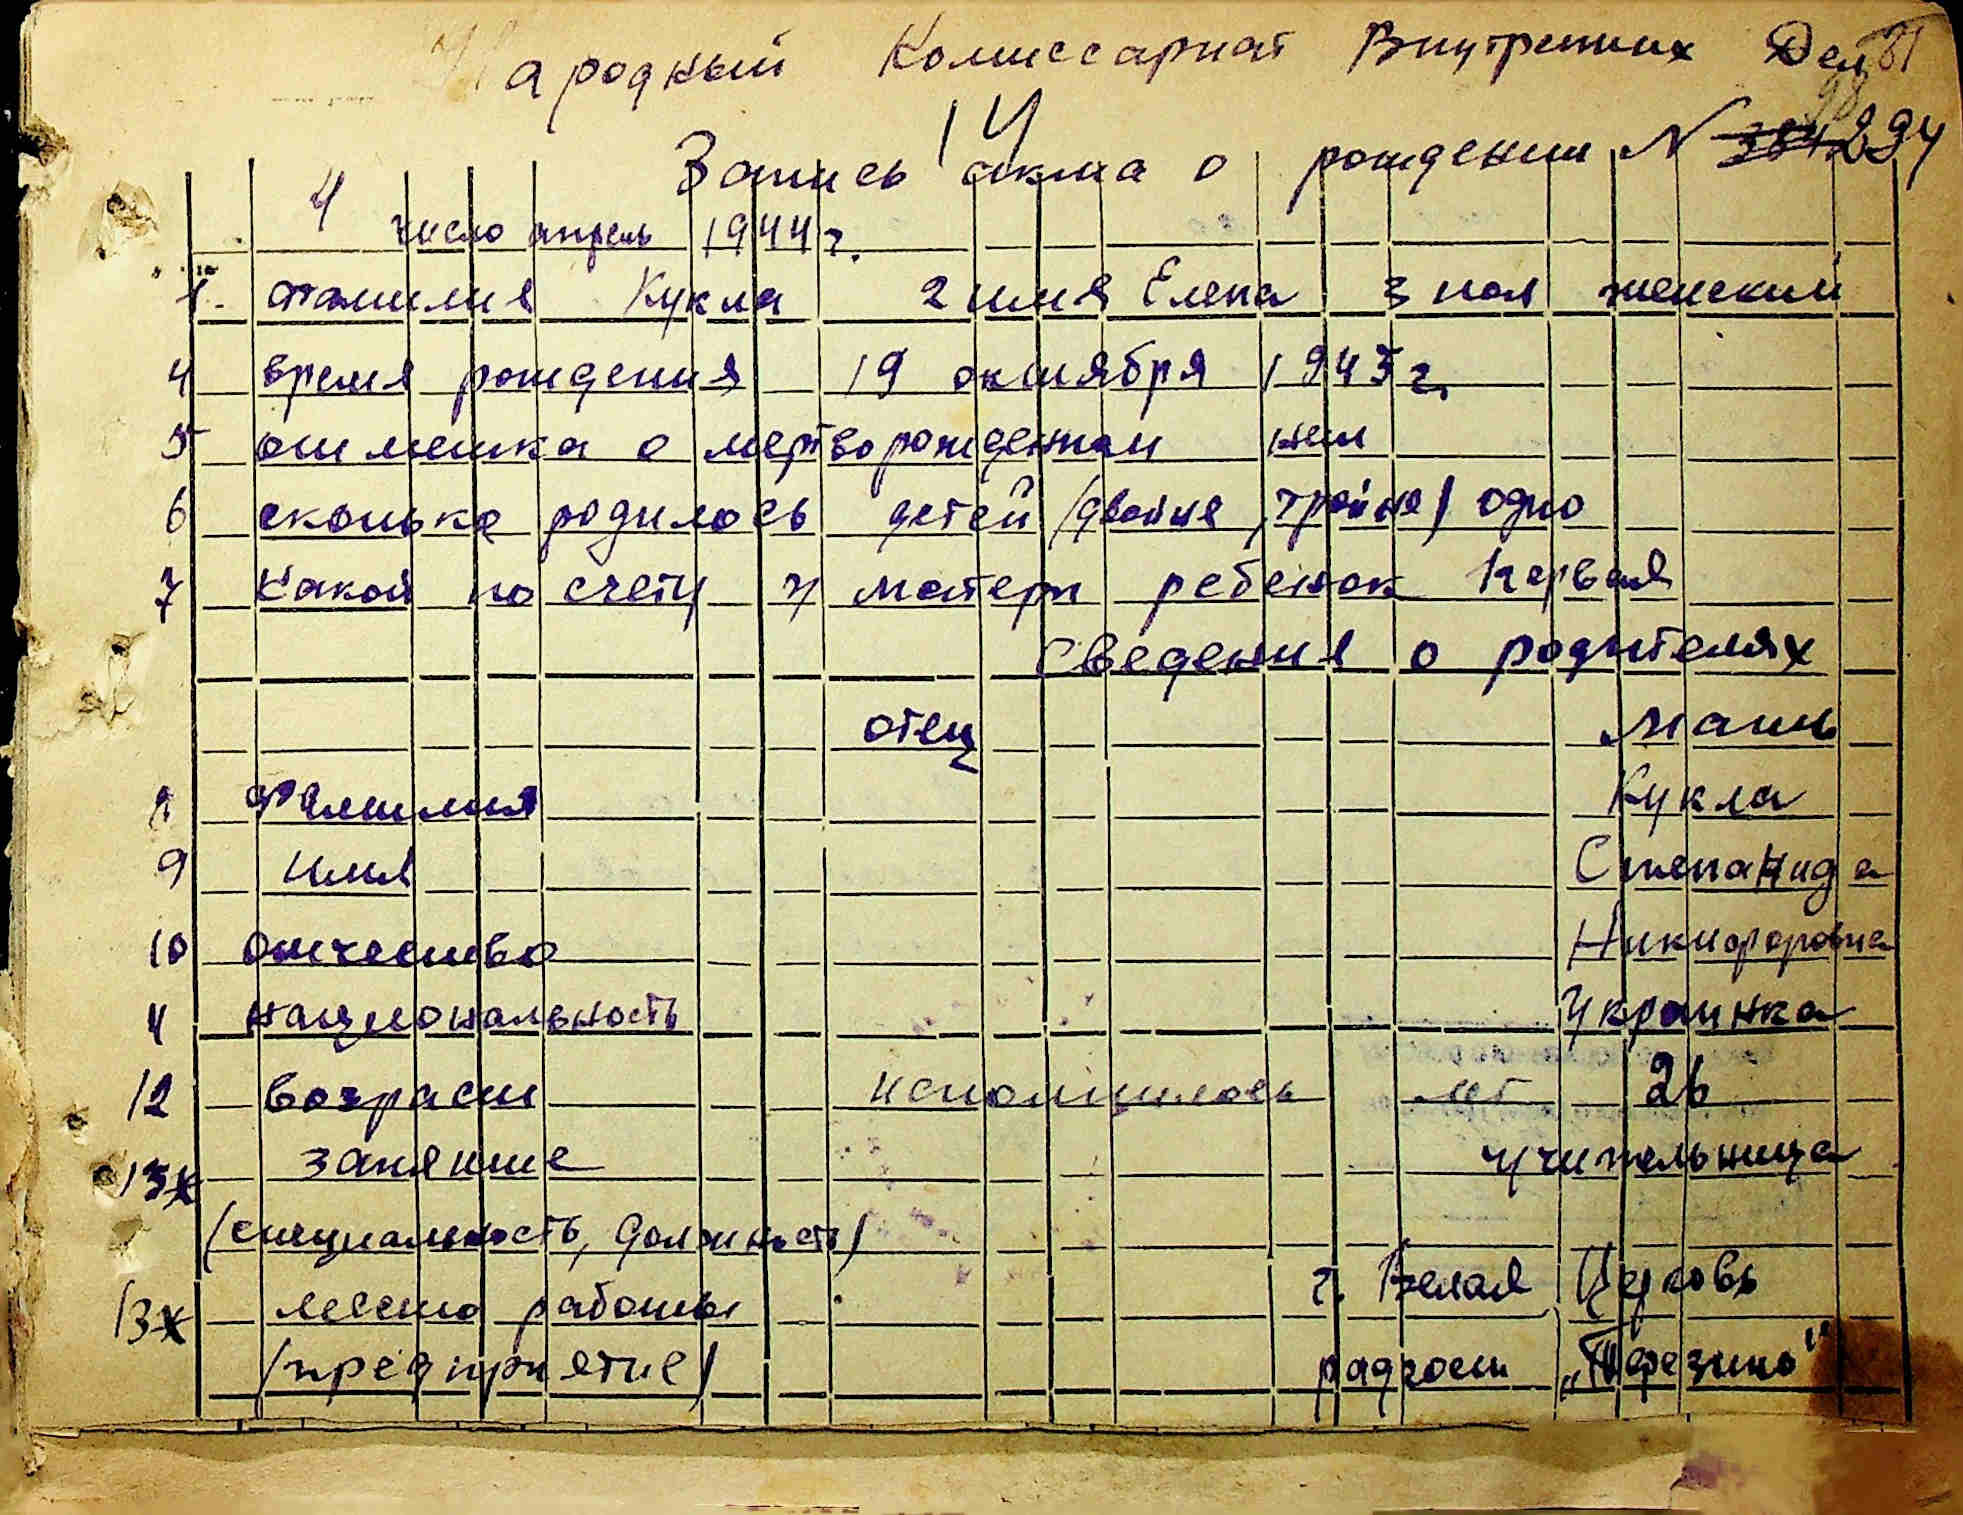 Народный Комиссариат Внутренних Дел
14
Запись акта о рождении N ~~384~~ 294
4 число апрель 1944 г.
1. фамилия Кукла 2 имя Елена 3 пол женский
4 время рождения 19 октября 1943 г.
5 отметка о мертворожденном нет
6 сколько родилось детей /двойня, тройня/ одно
7 Какой по счету у матери ребенок Первая
Сведения о родителях
отец мать
8 Фамилия Кукла
9 имя Степанида
10 отчество Никифоровна
11 национальность Украинка
12 возраст исполнилось лет 26
13х занятие учительница
(специальность, должность)
13х место работы г. Белая Церковь
(предприятие) радгосп „Терезино"